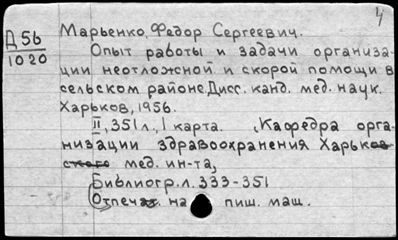 4
Д 56
1020
Марьенко, Федор Сергеевич.
Опыт работы и задачи организа-
ции неотложной и скорой помощи в
сельском районе. Дисс. канд. мед. наук.
Харьков, 1956.
II, 351 л., 1 карта. (Кафедра орга-
низации здравоохранения Харьков
ского мед. ин-та,
Библиогр. л. 333-351
Отпечат. на пиш. маш.